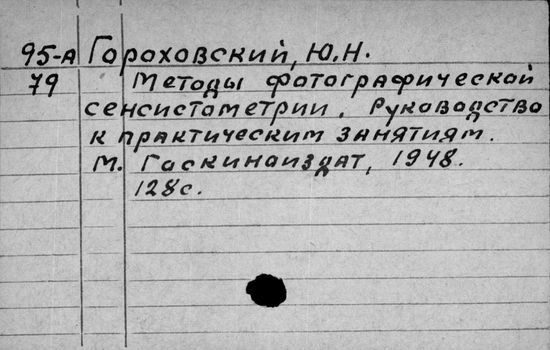 95-А Гороховский, Ю.Н.
79 Методы фотографической
сенсистометрии. Руководство
к практическим занятиям.
М. Госкиноиздат, 1948.
128с.